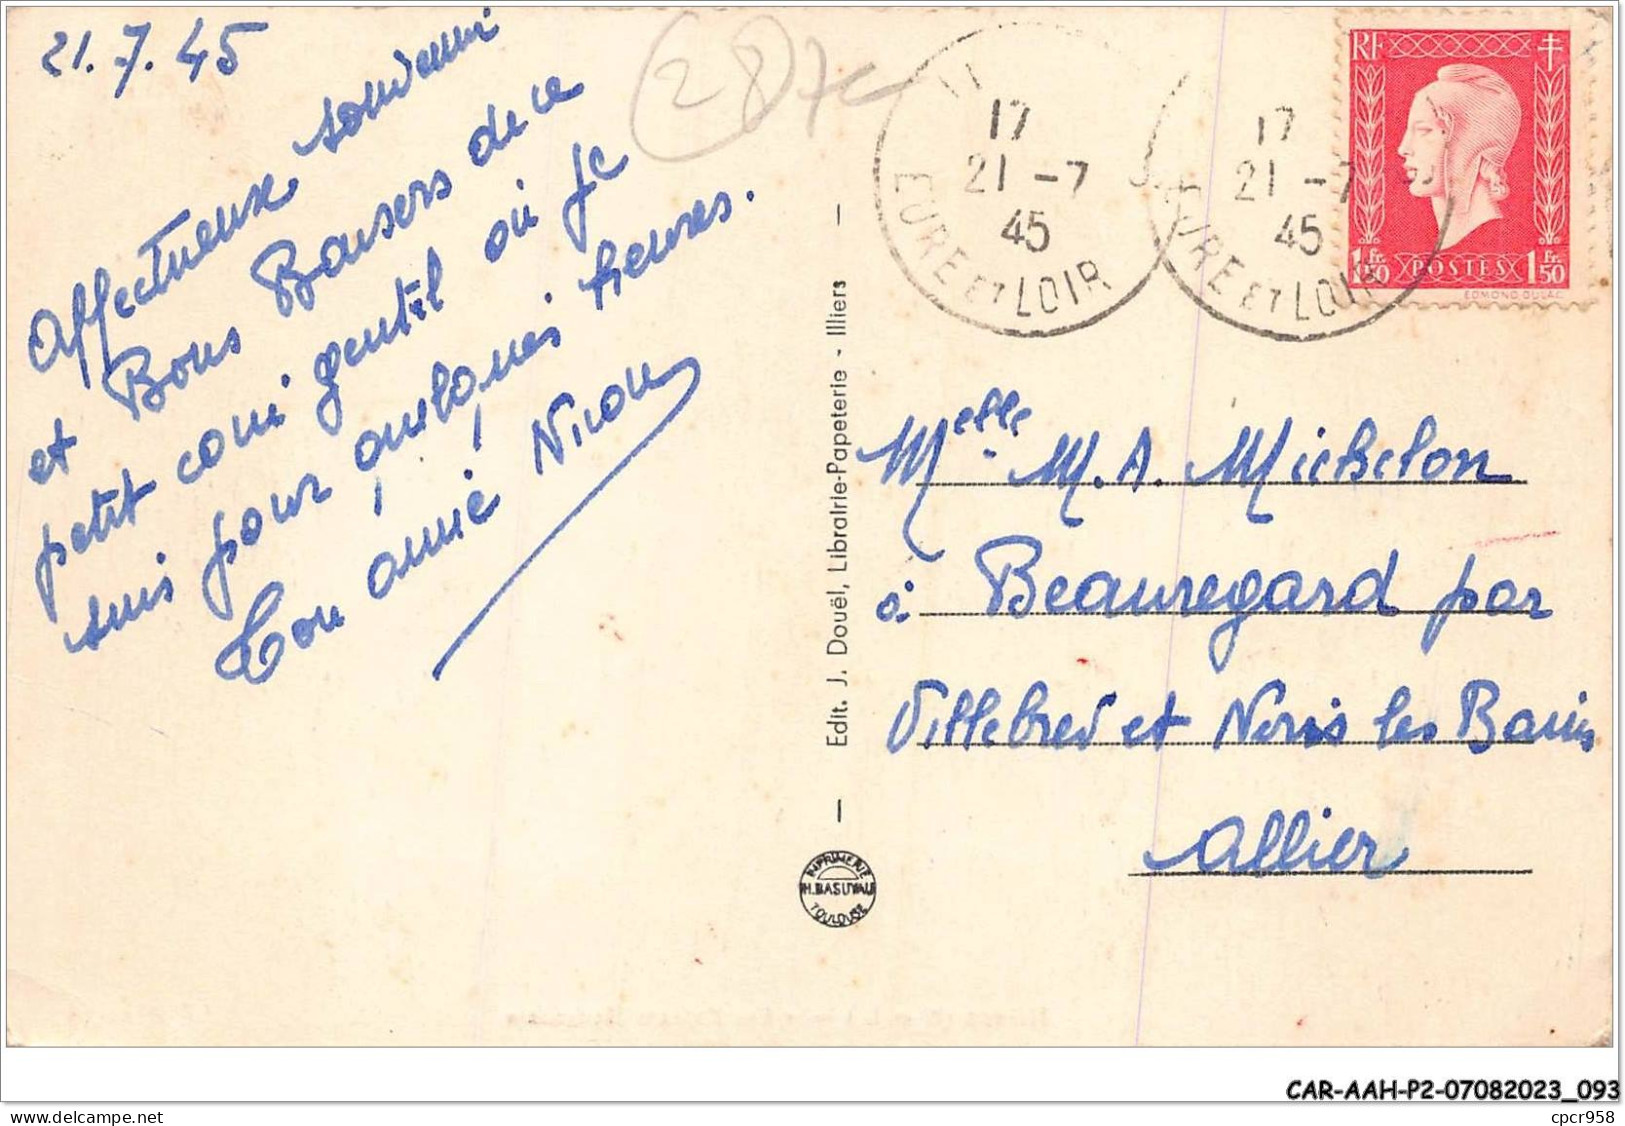 21.7.45
Affectueux souvenir
et Bons Baisers de ce
petit coin gentil où je
suis pour quelques heures.
Ton amie Ninon
287c
17
21-7
45
EURE ET LOIR
17
21-7
45
EURE ET LOIR
RF
1Fr. 50 POSTES 1Fr. 50
EDMOND DULAC
Melle M.A. Michelon
à Beauregard par
Villebret et Néris les Bains
Allier
Edit. J. Douël, Librairie-Papeterie - Illiers
IMPRIMERIE
TOULOUSE
CAR-AAH-P2-07082023_093
delcampe.net
cpcr958